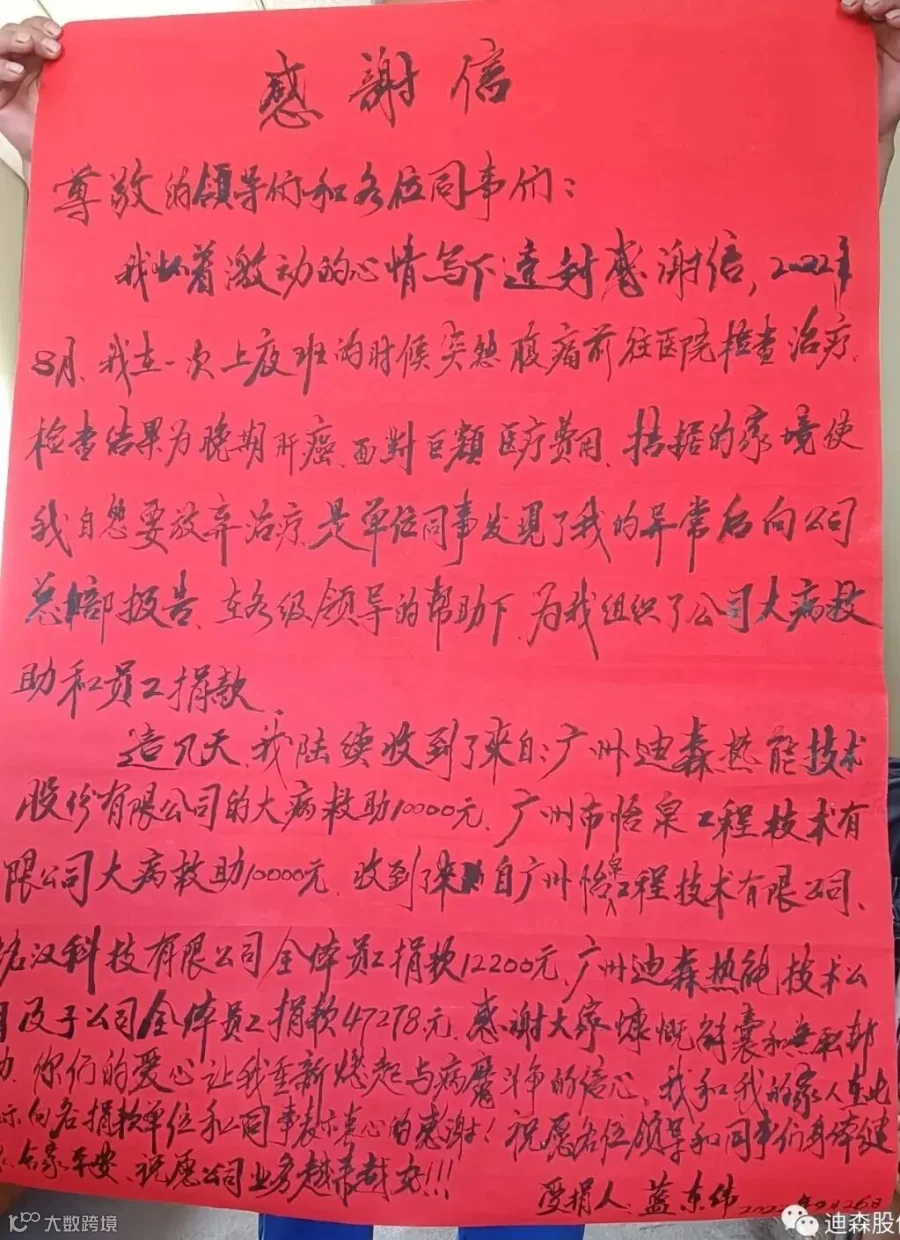 感謝信
尊敬的領导们和各位同事们：
我怀着激动的心情写下這封感谢信，2022年
8月、我在一次上夜班的时候突然腹痛前往医院检查治疗、
检查结果为晚期肝癌、面對巨額医疗费用、拮据的家境使
我自怨要放弃治疗、是单位同事发現了我的异常后向公司
总部报告、在各级领导的帮助下、为我组织了公司大病救
助和员工捐款、
這几天、我陆续收到了来自：广州迪森热能技术
股份有限公司的大病救助10000元、广州市怡泉工程技术有
限公司大病救助10000元、收到了来自广州怡泉工程技术有限公司、
汉科技有限公司全体员工捐款12200元、广州迪森热能技术公
司及子公司全体员工捐款47278元、感谢大家慷慨解囊和無私帮
助、你们的爱心让我重新燃起与病魔斗争的信心、我和我的家人在此
向各捐款单位和同事表示衷心的感谢！祝愿各位领导和同事们身体健
合家平安、祝愿公司业务越来越好!!!
受捐人：蓝东纬
大数跨境
迪森股份